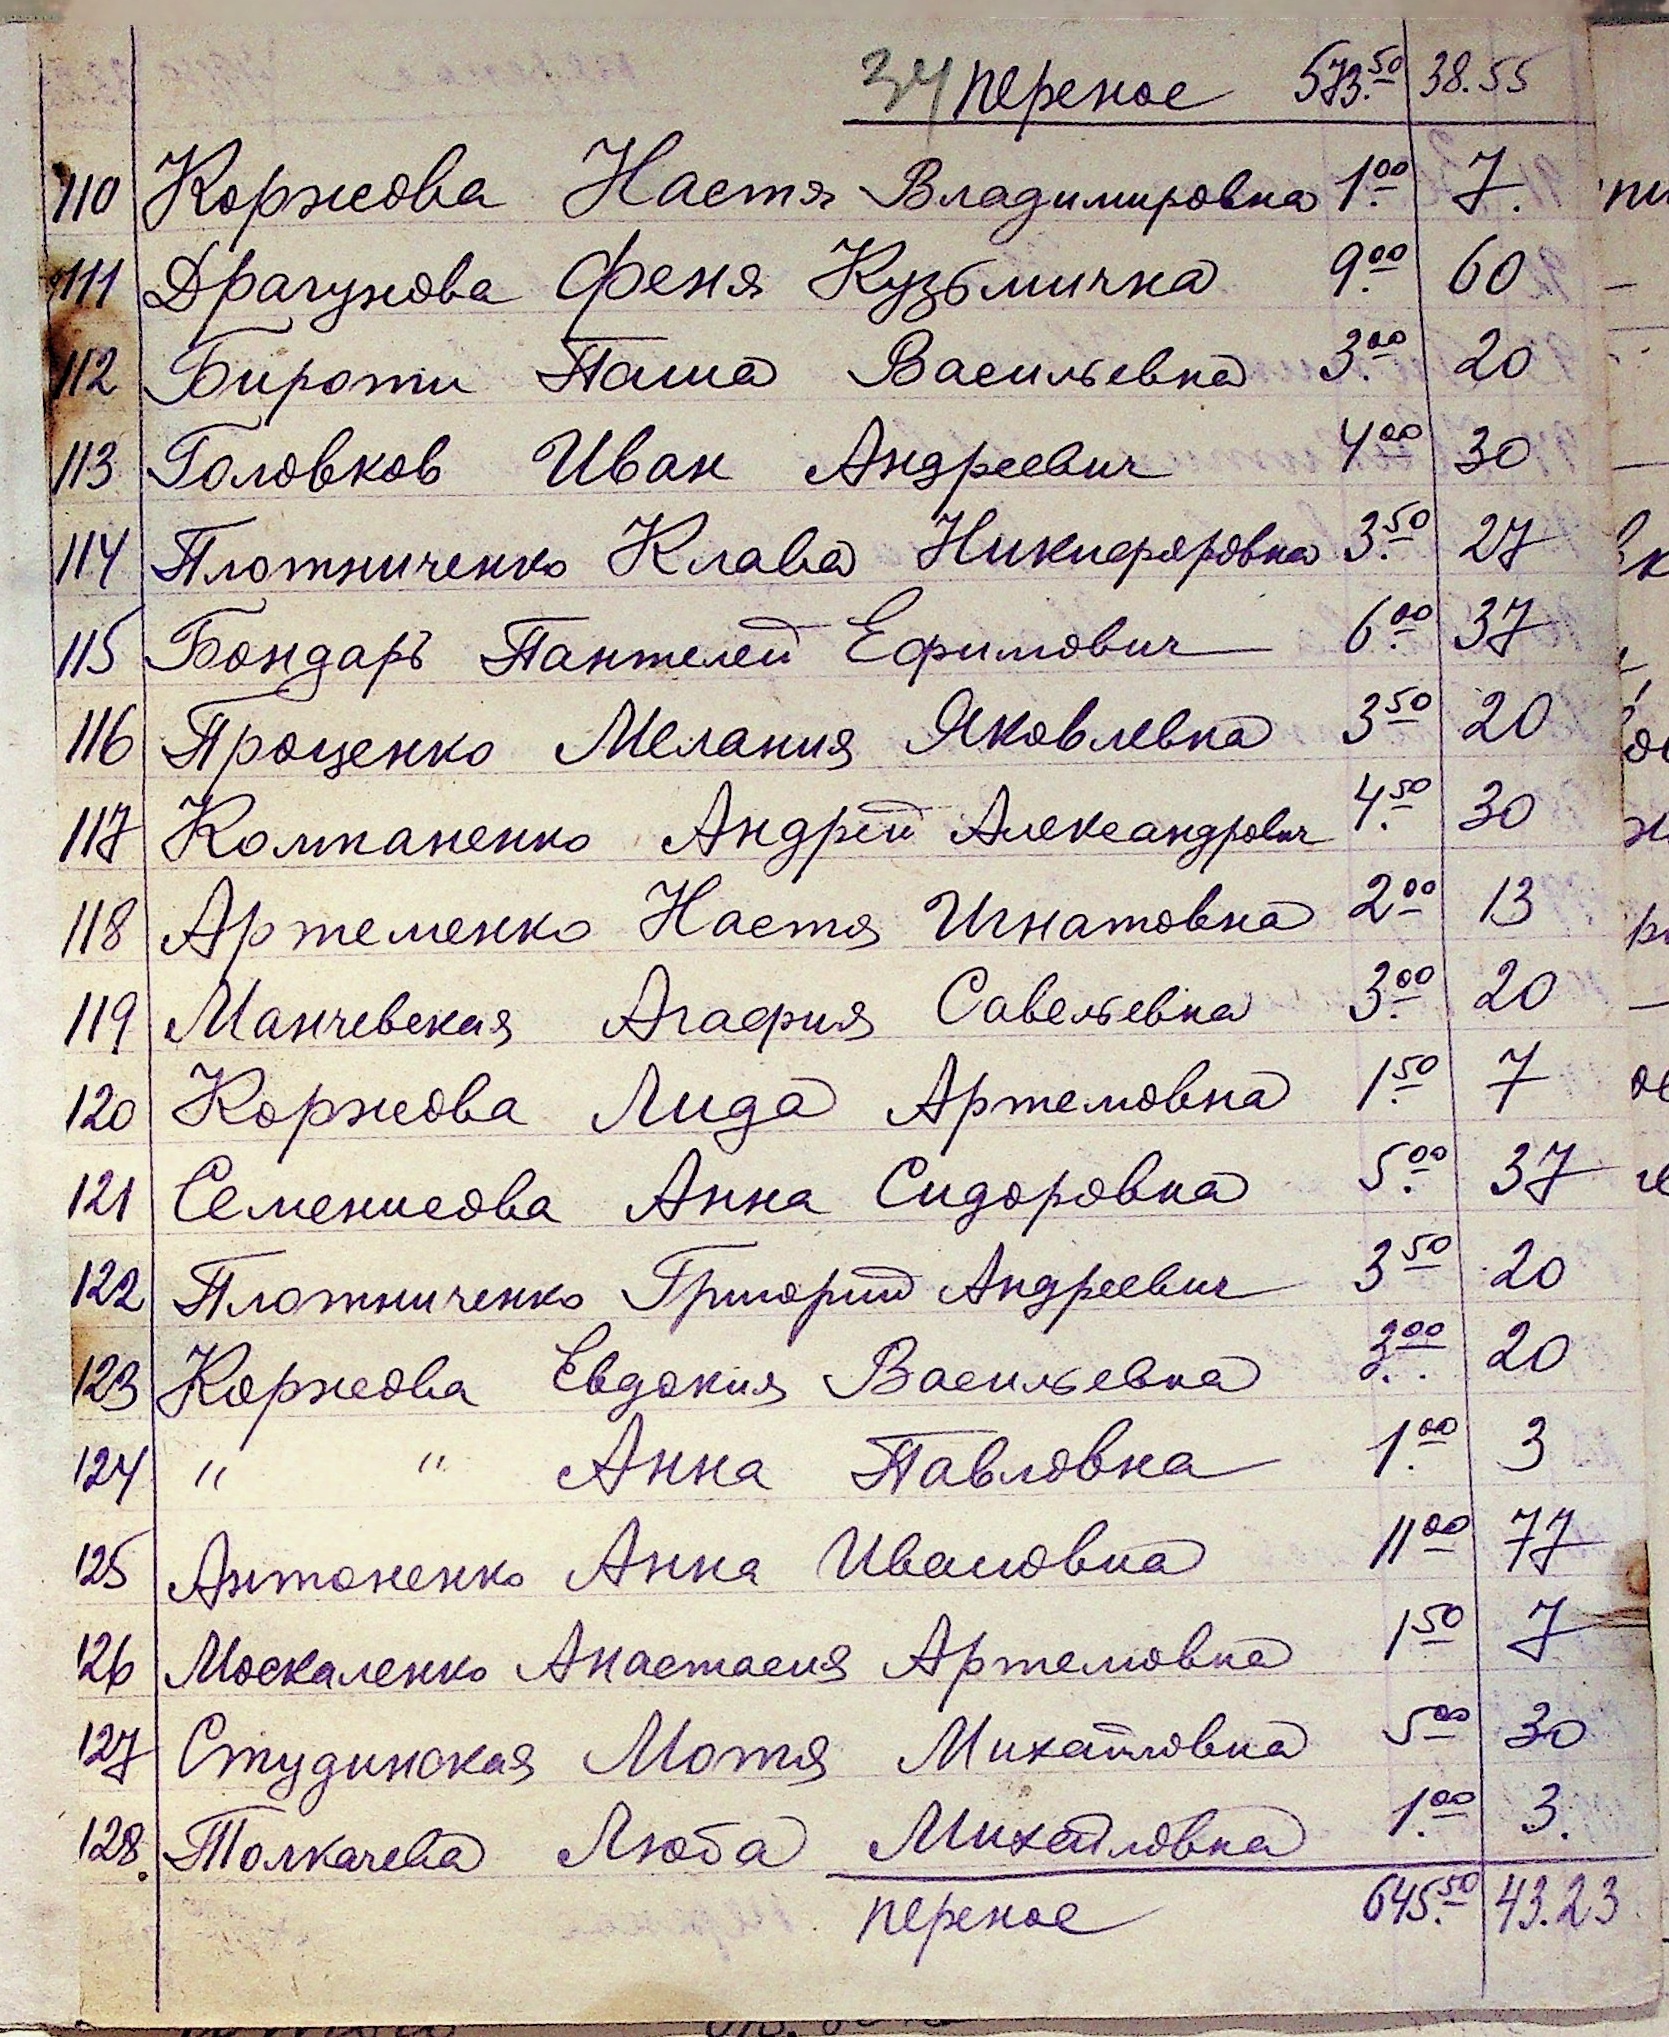 34 перенос 573.50 38.55
110 Коржова Настя Владимировна 1.00 7.
111 Драгунова Феня Кузьмична 9.00 60
112 Бироти Паша Васильевна 3.00 20
113 Головков Иван Андреевич 4.00 30
114 Плотниченко Клава Никифоровна 3.50 27
115 Бондарь Пантелей Ефимович 6.00 37
116 Проценко Мелания Яковлевна 3.50 20
117 Компаненко Андрей Александрович 4.50 30
118 Артеменко Настя Игнатовна 2.00 13
119 Манчевская Агафия Савельевна 3.00 20
120 Коржова Лида Артемовна 1.50 7
121 Семенисова Анна Сидоровна 5.00 37
122 Плотниченко Григорий Андреевич 3.50 20
123 Коржова Евдокия Васильевна 3.00 20
124 " " Анна Павловна 1.00 3
125 Антоненко Анна Ивановна 11.00 77
126 Москаленко Анастасия Артемовна 1.50 7
127 Студинская Мотя Михайловна 5.00 30
128. Толкачева Люба Михайловна 1.00 3.
перенос 645.50 43.23